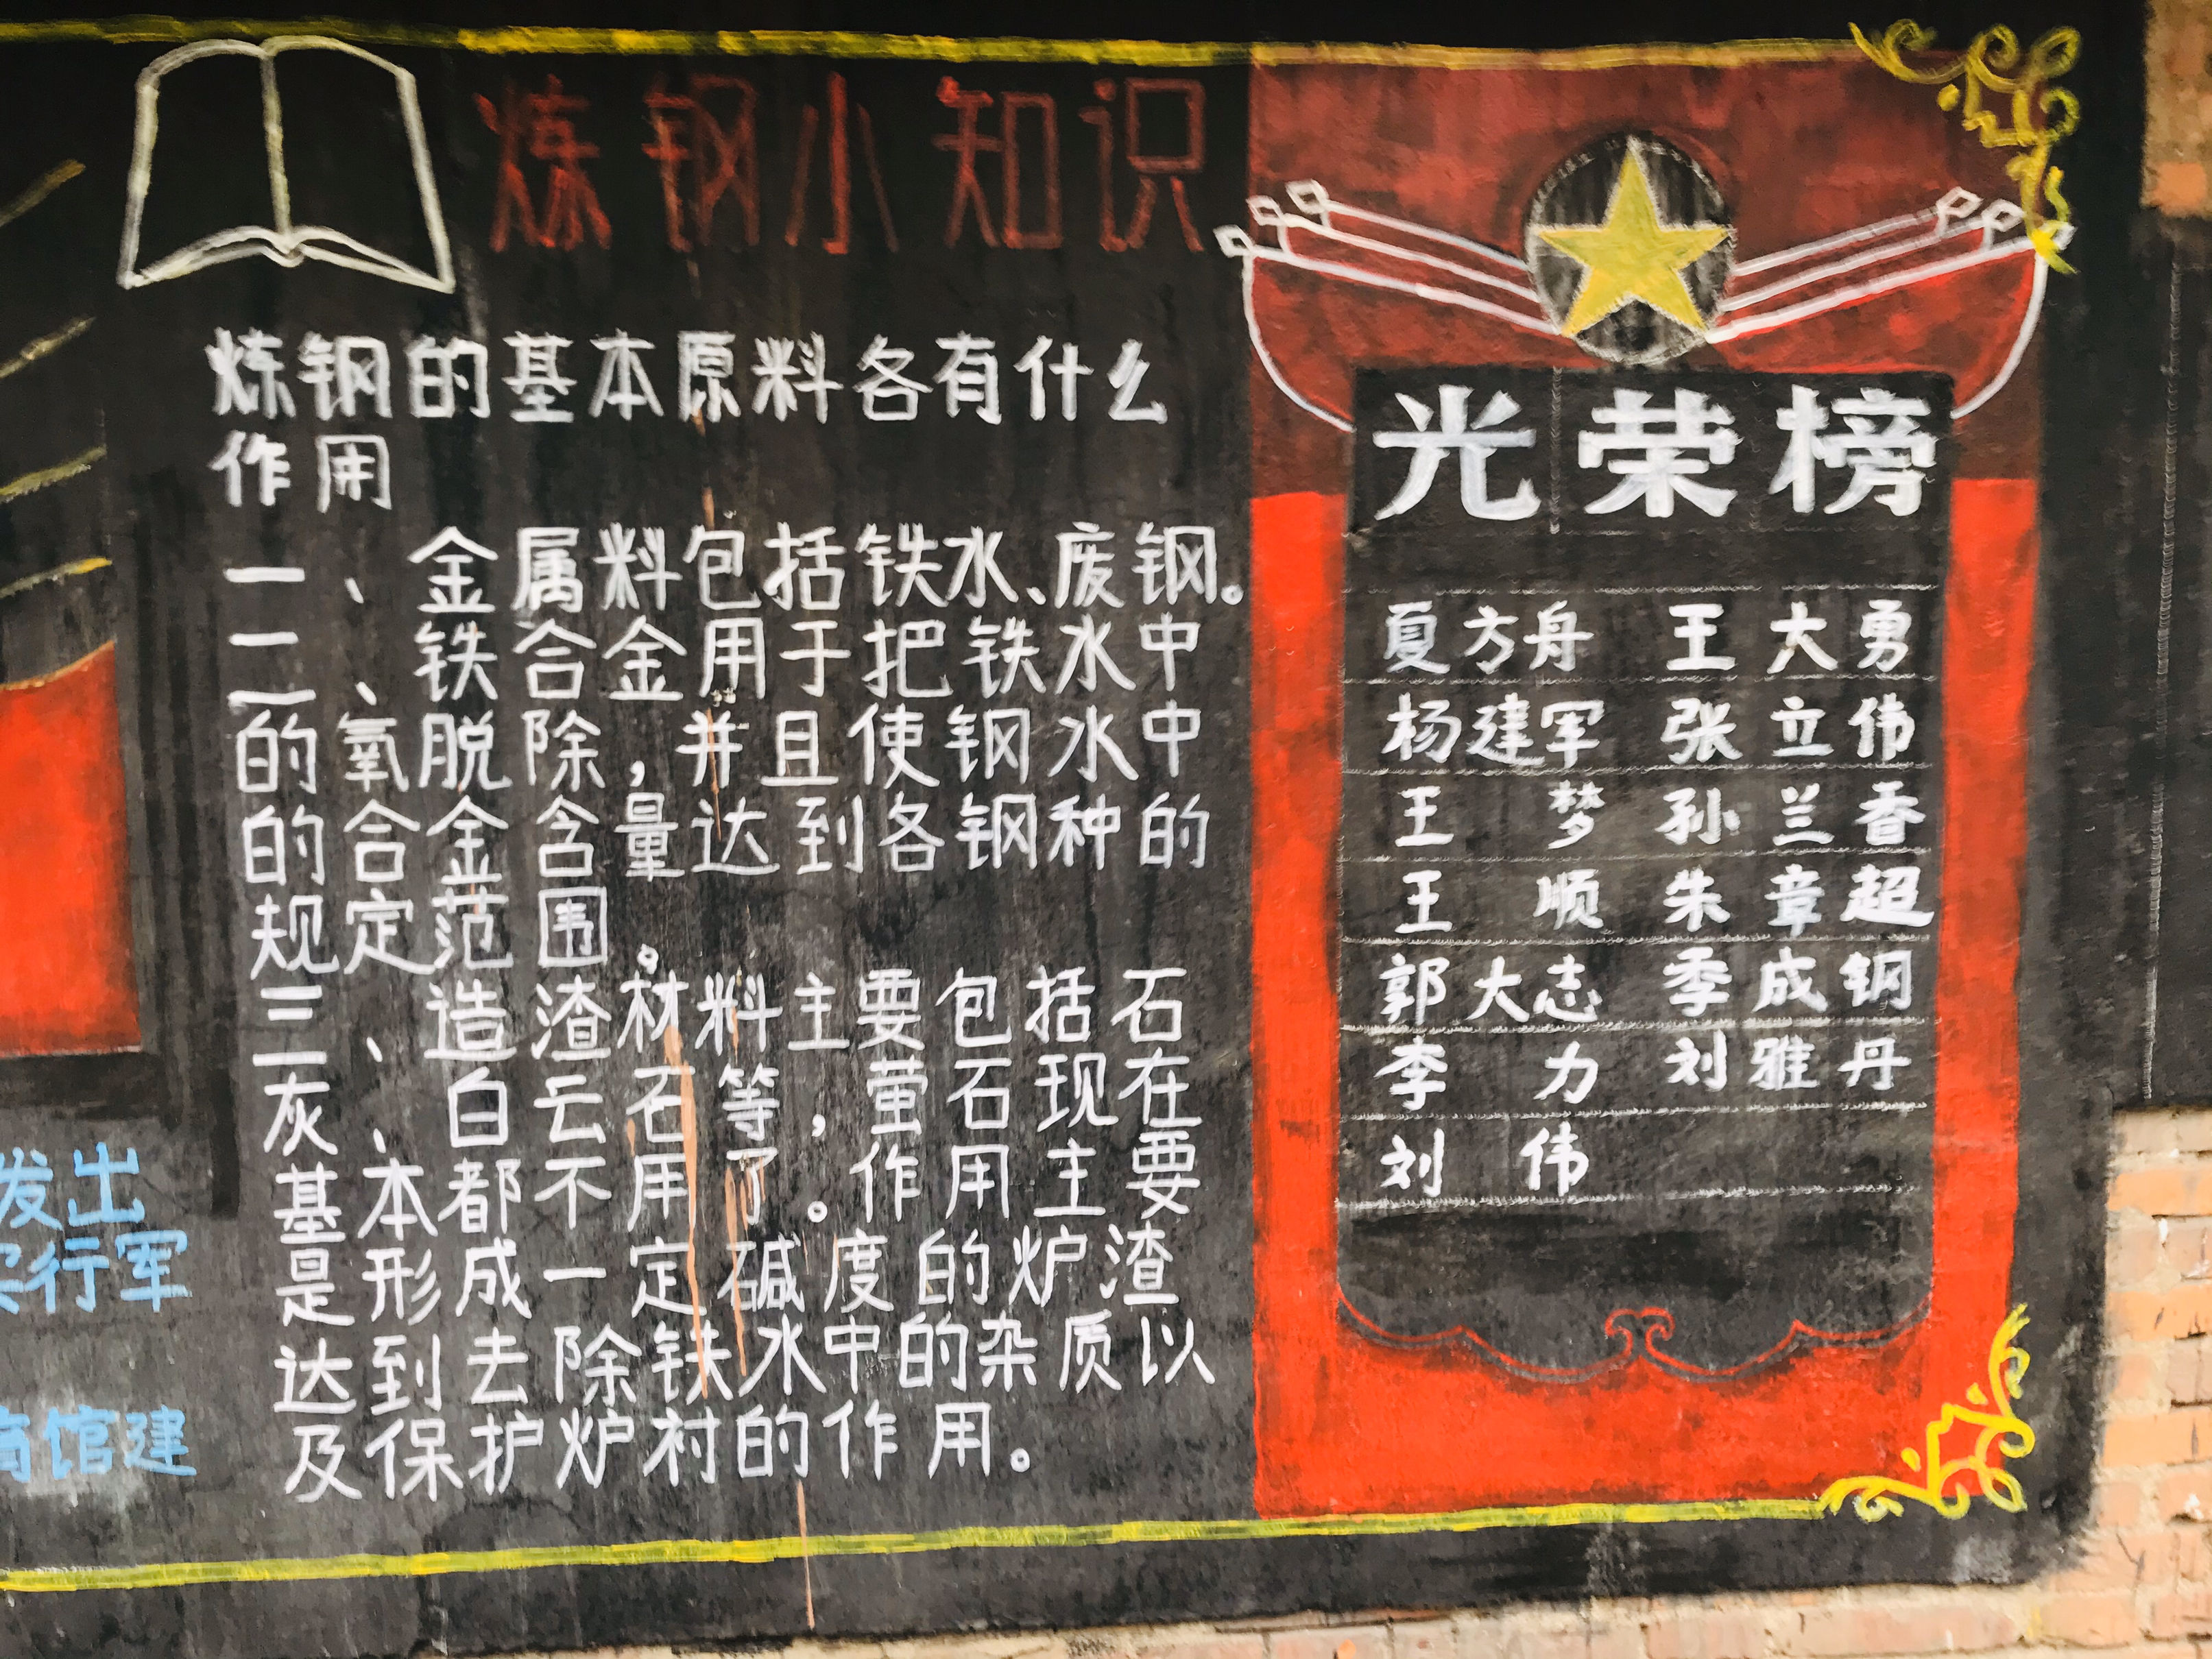 炼钢小知识
炼钢的基本原料各有什么
作用
一、金属料包括铁水、废钢。
二、铁合金用于把铁水中
的氧脱除,并且使钢水中
的合金含量达到各钢种的
规定范围。
三、造渣材料主要包括石
灰、白云石等,萤石现在
基本都不用了。作用主要
是形成一定碱度的炉渣
达到去除铁水中的杂质以
及保护炉村的作用。
光荣榜
夏方舟 王大勇
杨建军 张立伟
王梦 孙兰香
王顺 朱章超
郭大志 季成钢
李力 刘雅丹
刘伟
发出
行军
馆建